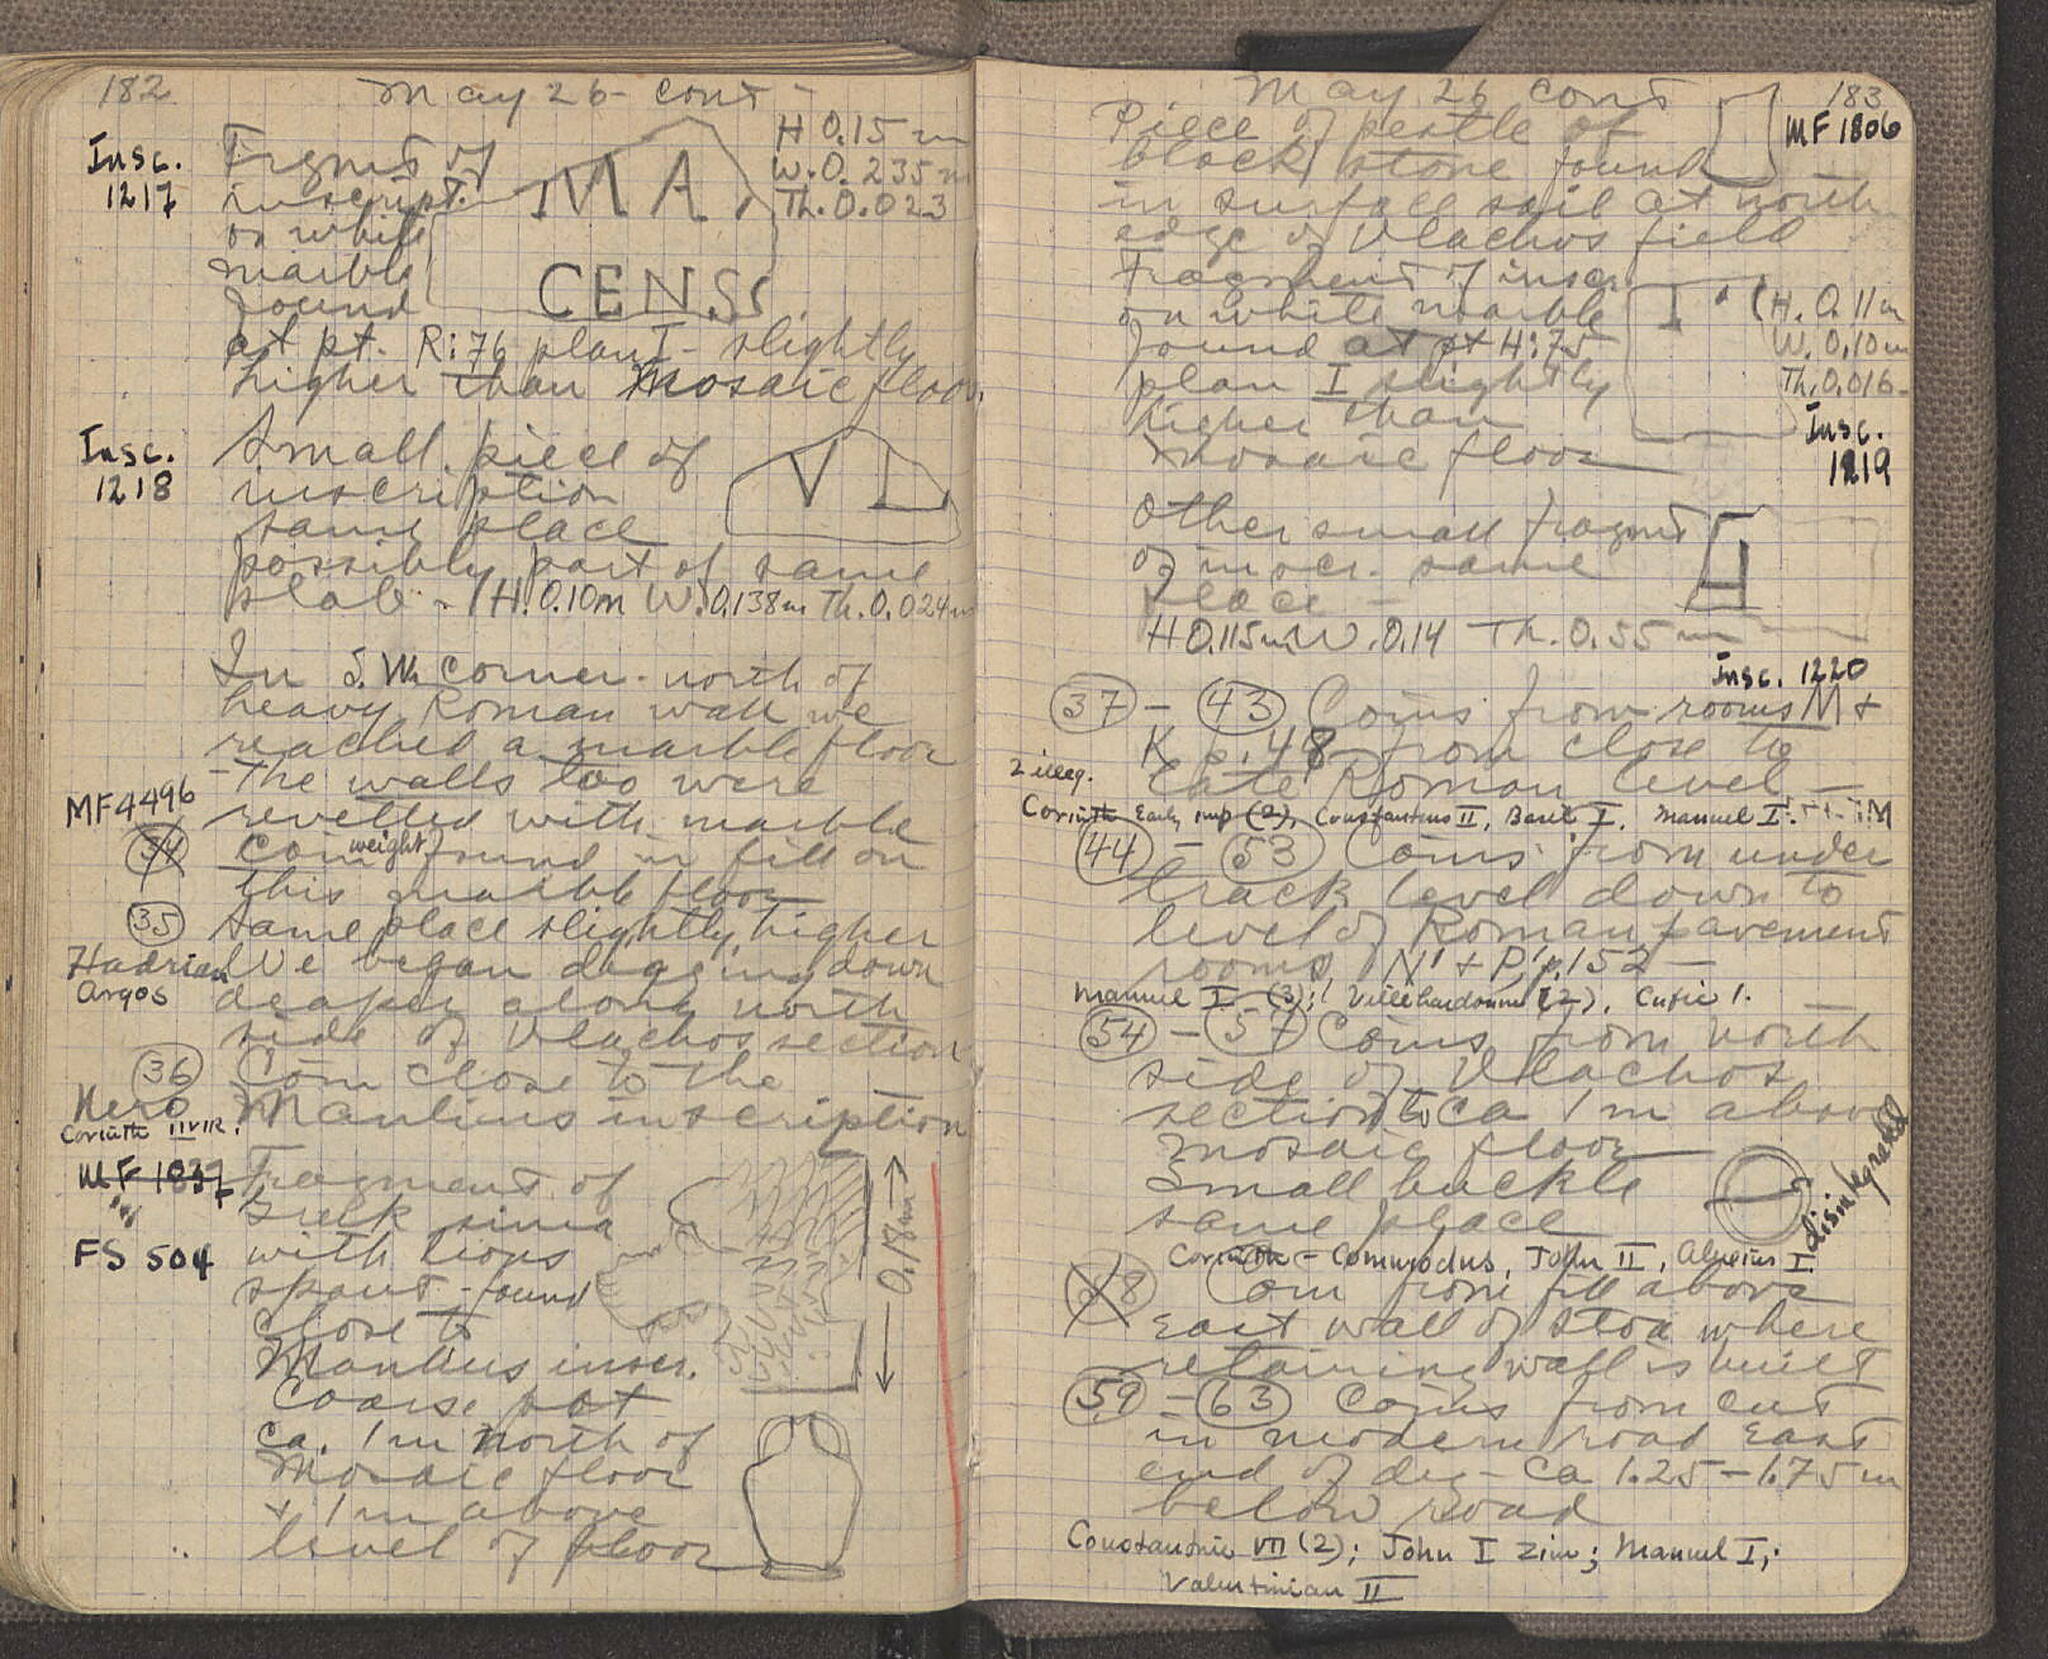 182
May 26 - cont -
Insc.
1217
Fragmt of
inscript.
on white
marble
found
MA
CENS
H 0.15 m
W. 0.235 m
Th. 0.023
at pt. R:76 plan I - slightly
higher than Mosaic floor.
Insc.
1218
Small piece of
inscription
same place
V I
possibly part of same
slab - H. 0.10m W. 0.138m Th. 0.024m
In S.W. corner - north of
heavy Roman wall we
reached a marble floor
- The walls too were
revetted with marble
MF4496
34 Coin weight found in fill on
this marble floor
35 same place slightly higher
Hadrian
Argos
We began digging down
deaper along north
side of Vlachos section
36 Coin close to the
Manlius inscription
Nero
Corinth IIVIR.
MF 1837
FS 504
Fragment of
Greek sima
with lions
spout - found
close to
Manlius inscr.
0.18m
Coarse pot
ca. 1m North of
Mosaic floor
+ 1m above
level of floor
183
May 26 cont
MF 1806
Piece of pestle of
black stone found
in surface soil at north
edge of Vlachos field
Fragment of inscr.
on white marble
found at pt H:75
plan I slightly
higher than
mosaic floor
I
H. 0.11m
W. 0.10m
Th. 0.016-
Insc.
1219
Other small fragmt
of inscr. same
place -
H 0.115m W. 0.14 Th. 0.55m
Insc. 1220
37 - 43 Coins from rooms M +
K p. 48 from close to
Late Roman level -
2 illeg.
Corinth Early imp (2), Constantius II, Basil I, Manuel I.
44 - 53 Coins from under
track level down to
level of Roman pavement
rooms N' + P', p. 152 -
Manuel I (3); Villehardouin (2), Cufic 1.
54 - 57 Coins from north
side of Vlachos
section to ca 1m above
mosaic floor
Small buckle
same place
disintegrated
Corinth - Commodus, John II, Alexius I.
58 Coin from fill above
East wall of Stoa where
retaining wall is built
59 - 63 Coins from cut
in modern road East
end of dig - ca 1.25 - 1.75m
below road
Constantine VII (2); John I Zim; Manuel I;
Valentinian II